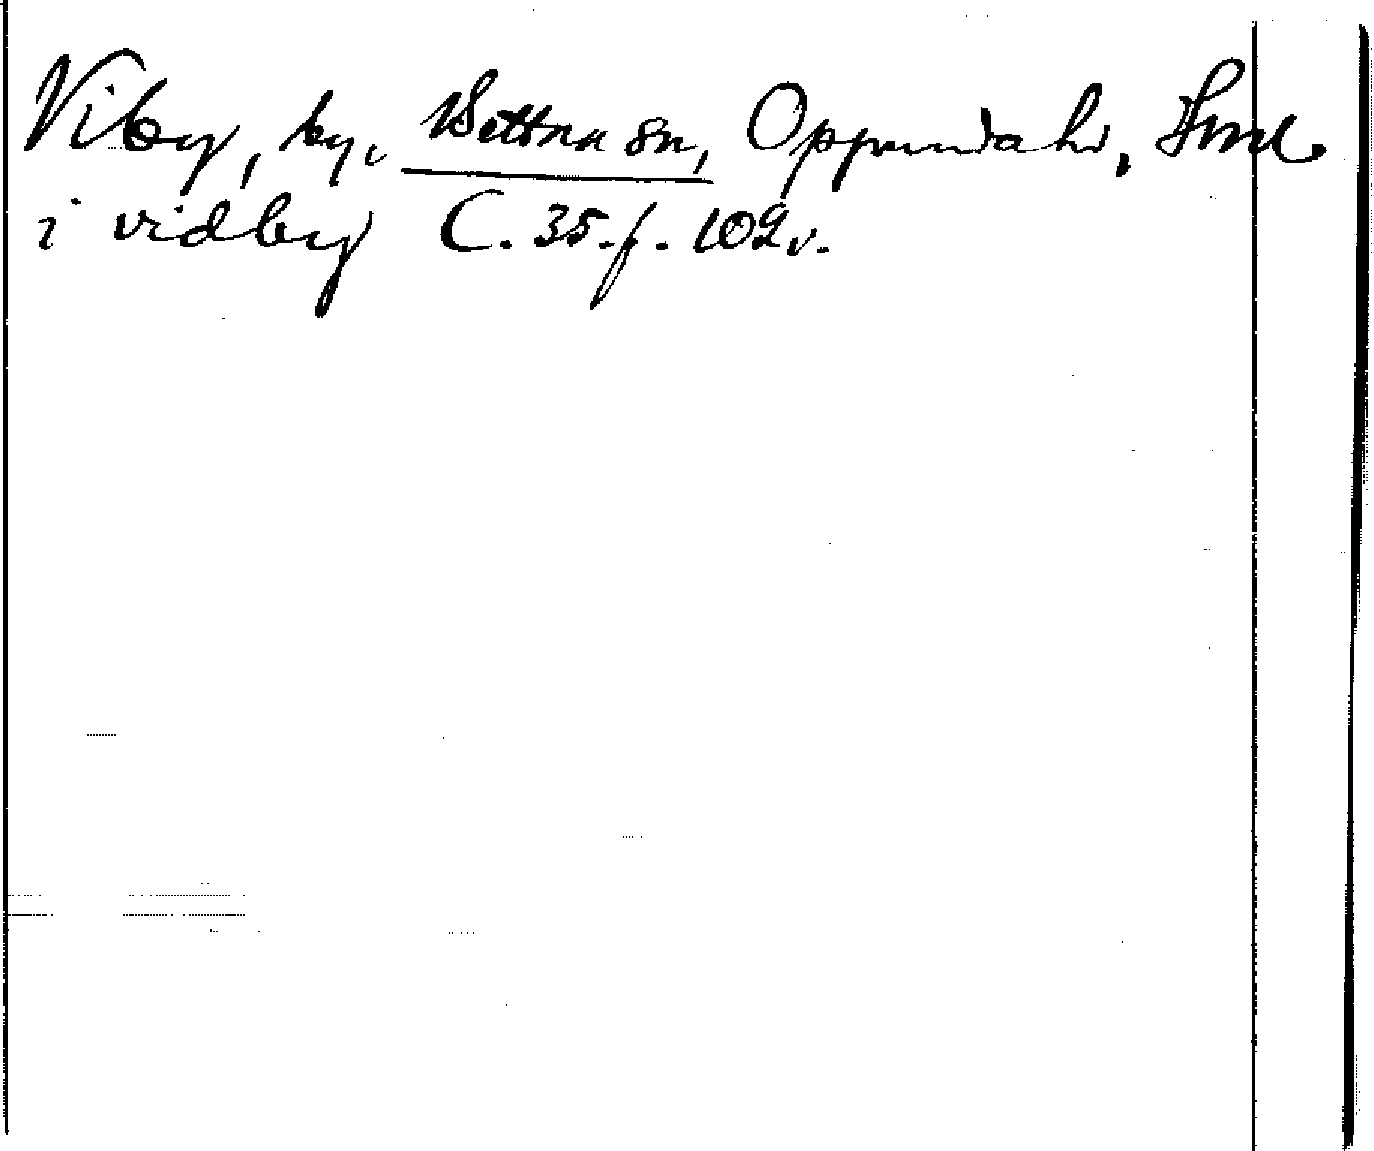 Viby, by, Wettna sn, Oppunda hd, Srml.
i vidby C. 35. f. 102 v.